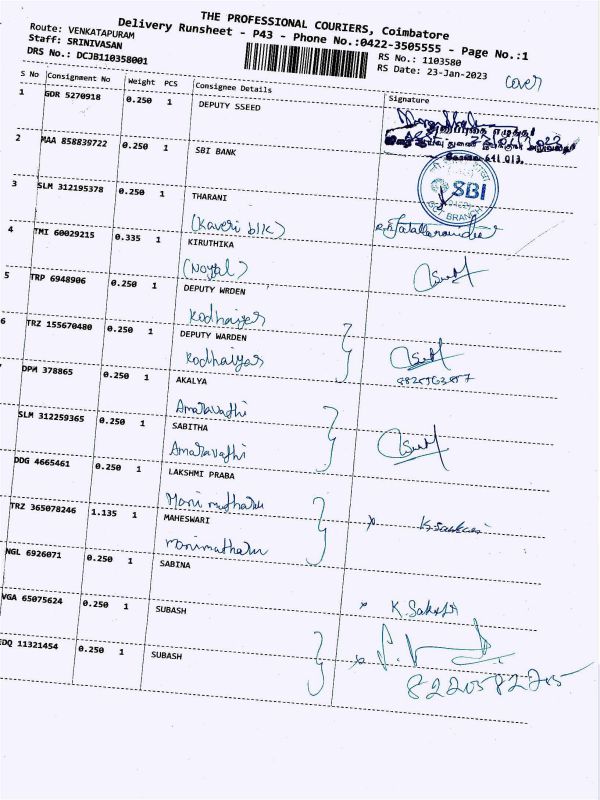 THE PROFESSIONAL COURIERS, Coimbatore
Delivery Runsheet - P43 - Phone No.:0422-3505555 - Page No.:1
Route: VENKATAPURAM
Staff: SRINIVASAN
DRS No.: DCJB110358001
RS No.: 1103580
RS Date: 23-Jan-2023
cover
S No Consignment No Weight PCS Consignee Details Signature
1 GDR 5270918 0.250 1 DEPUTY SSEED
கோவை 641 013.
2 MAA 858839722 0.250 1 SBI BANK
SBI
3 SLM 312195378 0.250 1 THARANI
(Kaveri blk)
4 TMI 60029215 0.335 1 KIRUTHIKA
(Noyal)
5 TRP 6948906 0.250 1 DEPUTY WRDEN
6 TRZ 155670480 0.250 1 DEPUTY WARDEN
DPM 378865 0.250 1 AKALYA
Amaravathi
SLM 312259365 0.250 1 SABITHA
Amaravathi
DDG 4665461 0.250 1 LAKSHMI PRABA
TRZ 365078246 1.135 1 MAHESWARI
NGL 6926071 0.250 1 SABINA
VGA 65075624 0.250 1 SUBASH
EDQ 11321454 0.250 1 SUBASH